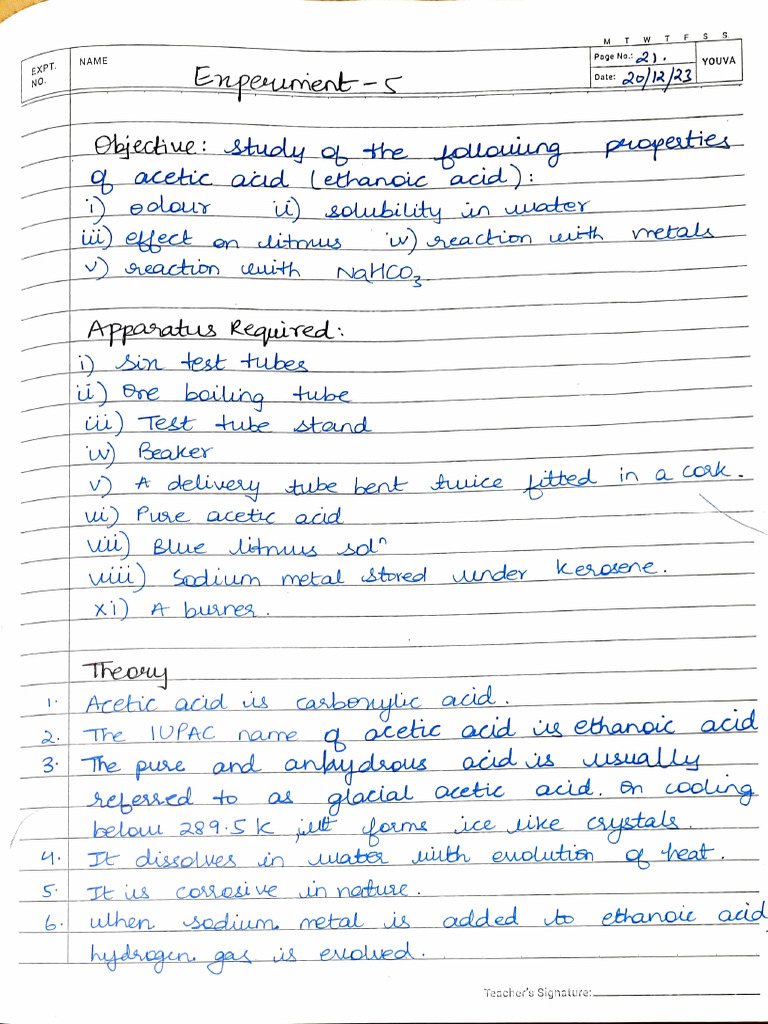 M T W T F S S
EXPT. NO. NAME Page No.: 21. YOUVA
Date: 20/12/23
Experiment - 5
Objective: study of the following properties
of acetic acid (ethanoic acid):
i) odour ii) solubility in water
iii) effect on litmus iv) reaction with metals
v) reaction with NaHCO₃
Apparatus Required:
i) six test tubes
ii) One boiling tube
iii) Test tube stand
iv) Beaker
v) A delivery tube bent twice fitted in a cork.
vi) Pure acetic acid
vii) Blue litmus solⁿ
viii) Sodium metal stored under kerosene.
xi) A burner.
Theory
1. Acetic acid is carboxylic acid.
2. The IUPAC name of acetic acid is ethanoic acid
3. The pure and anhydrous acid is usually
referred to as glacial acetic acid. On cooling
below 289.5 K, it forms ice like crystals.
4. It dissolves in water with evolution of heat.
5. It is corrosive in nature.
6. when sodium metal is added to ethanoic acid
hydrogen gas is evolved.
Teacher's Signature: